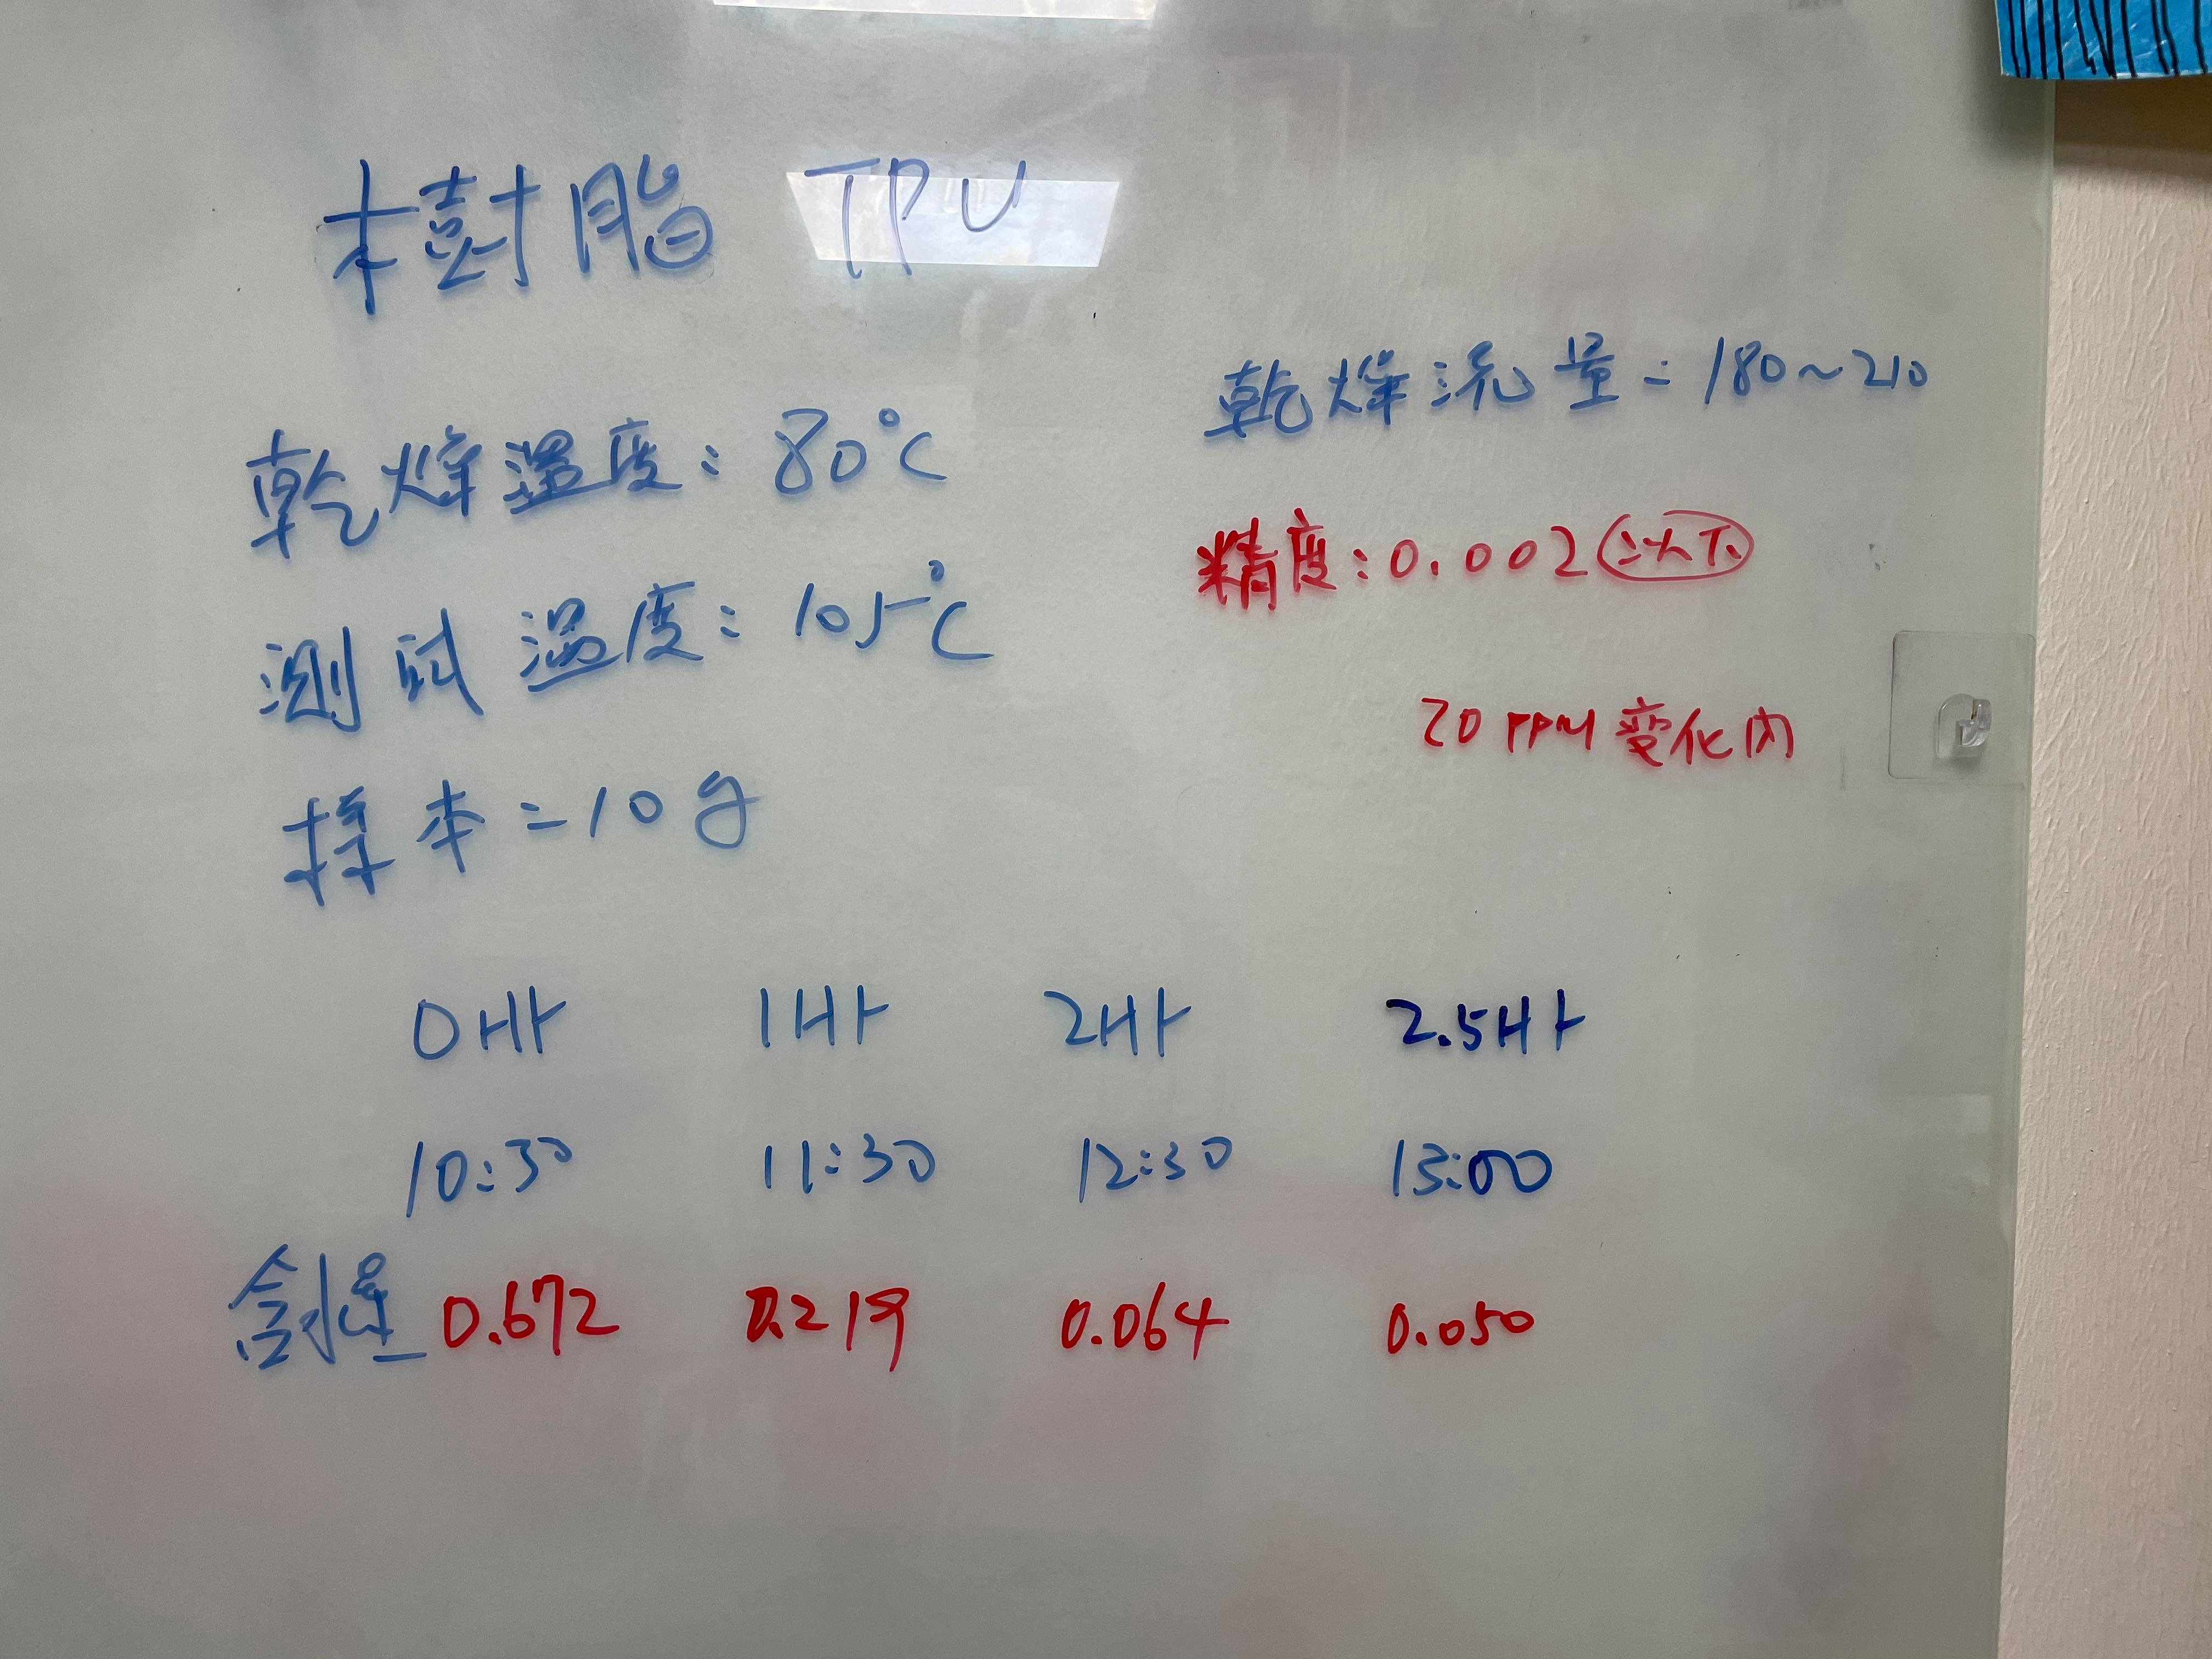 樹脂 TPU
乾燥溫度：80°C
測試溫度：105°C
樣本=10g
乾燥流量=180~210
精度：0.002以下
20 PPM 変化内
0Hr 1Hr 2Hr 2.5Hr
10:30 11:30 12:30 13:00
含水率 0.672 0.219 0.064 0.050